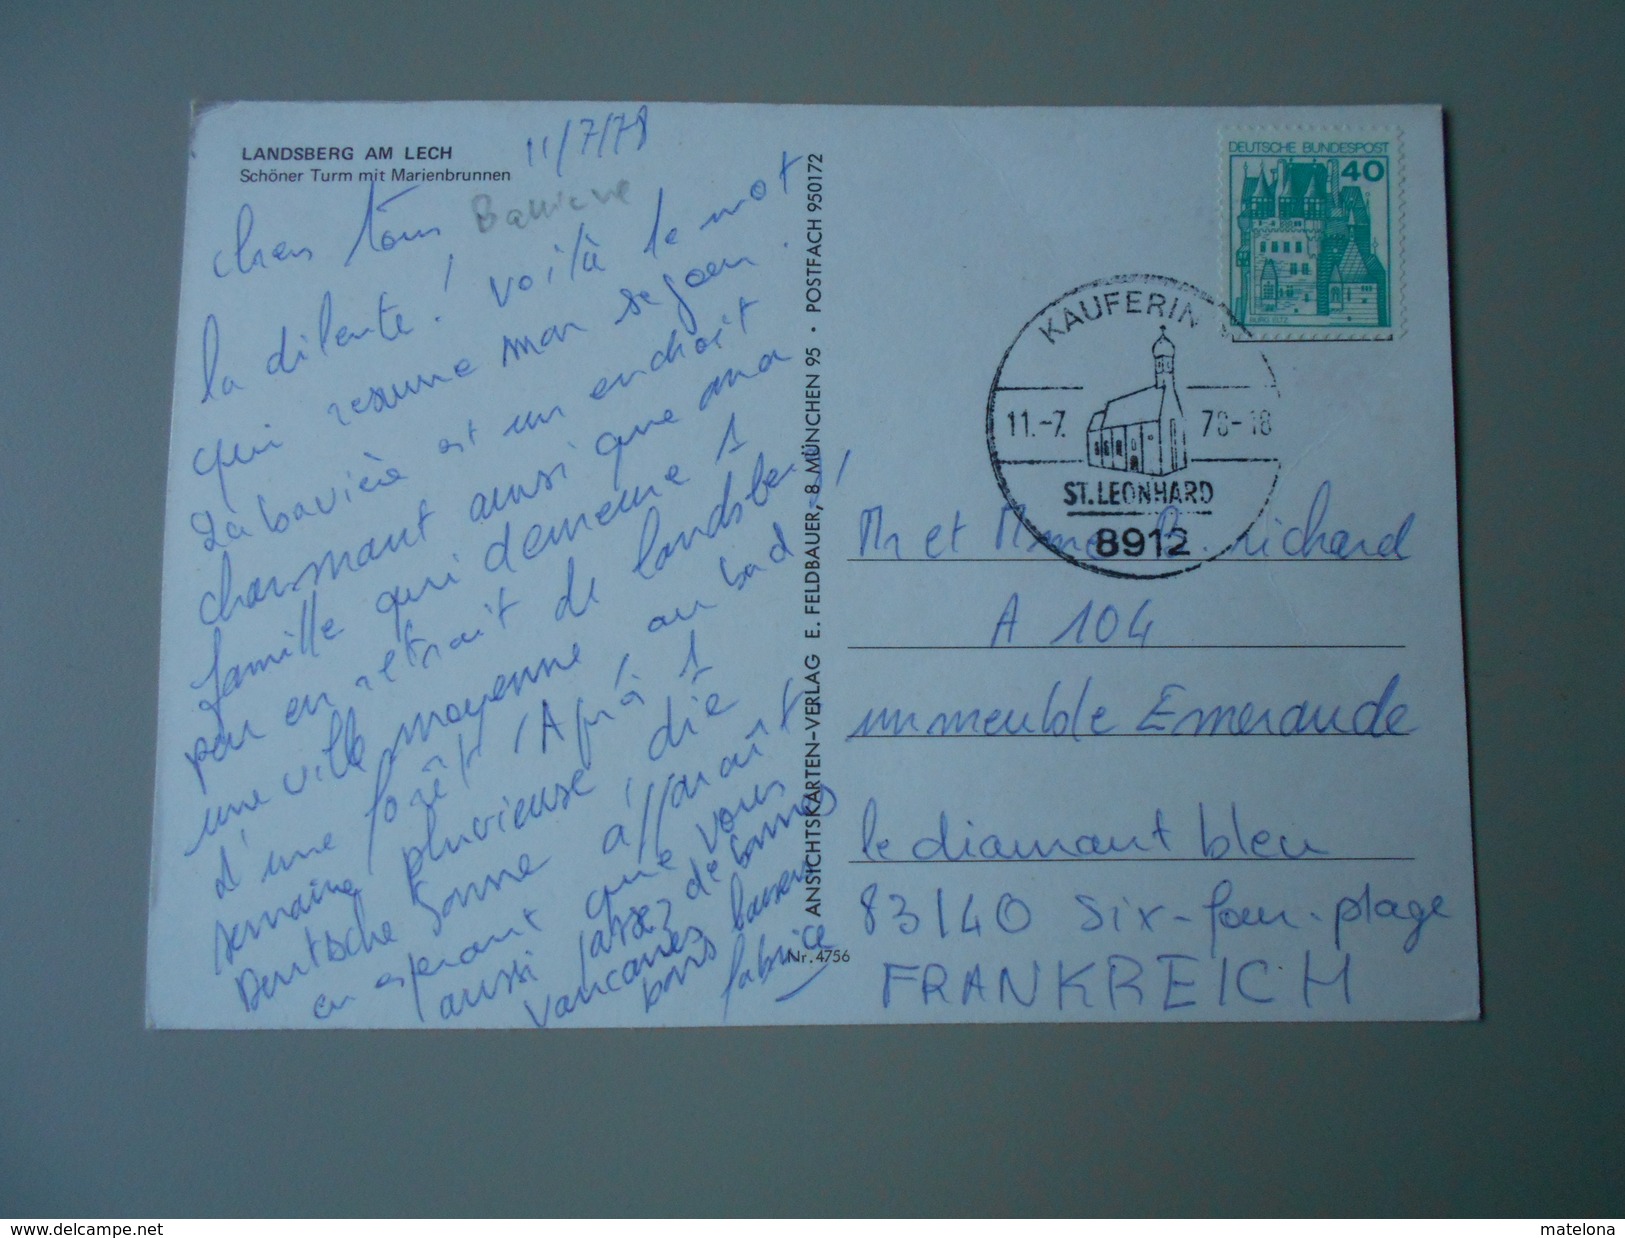 LANDSBERG AM LECH
Schöner Turm mit Marienbrunnen
11/7/78
Bavière
chers tous
la dilente! voilà le mot
qui resume mon sejour.
La bavière est un endroit
charmant ainsi que ma
famille qui demeure 1
peu en retrait de landsberg,
une ville moyenne au bord
d'une forêt. Après 1
semaine pluvieuse, die
Deutsche Sonne apparaît
en esperant que vous
aussi passez de bonnes
vancanes
bons baisers
fabrice
ANSICHTSKARTEN-VERLAG E. FELDBAUER, 8 MÜNCHEN 95 · POSTFACH 950172
Nr. 4756
DEUTSCHE BUNDESPOST
40
BURG ELTZ
KAUFERING
11.-7. 78-18
ST. LEONHARD
8912
Mr et Mme B. richard
A 104
immeuble Emeraude
le diamant bleu
83140 six-four-plage
FRANKREICH
matelona
www.delcampe.net